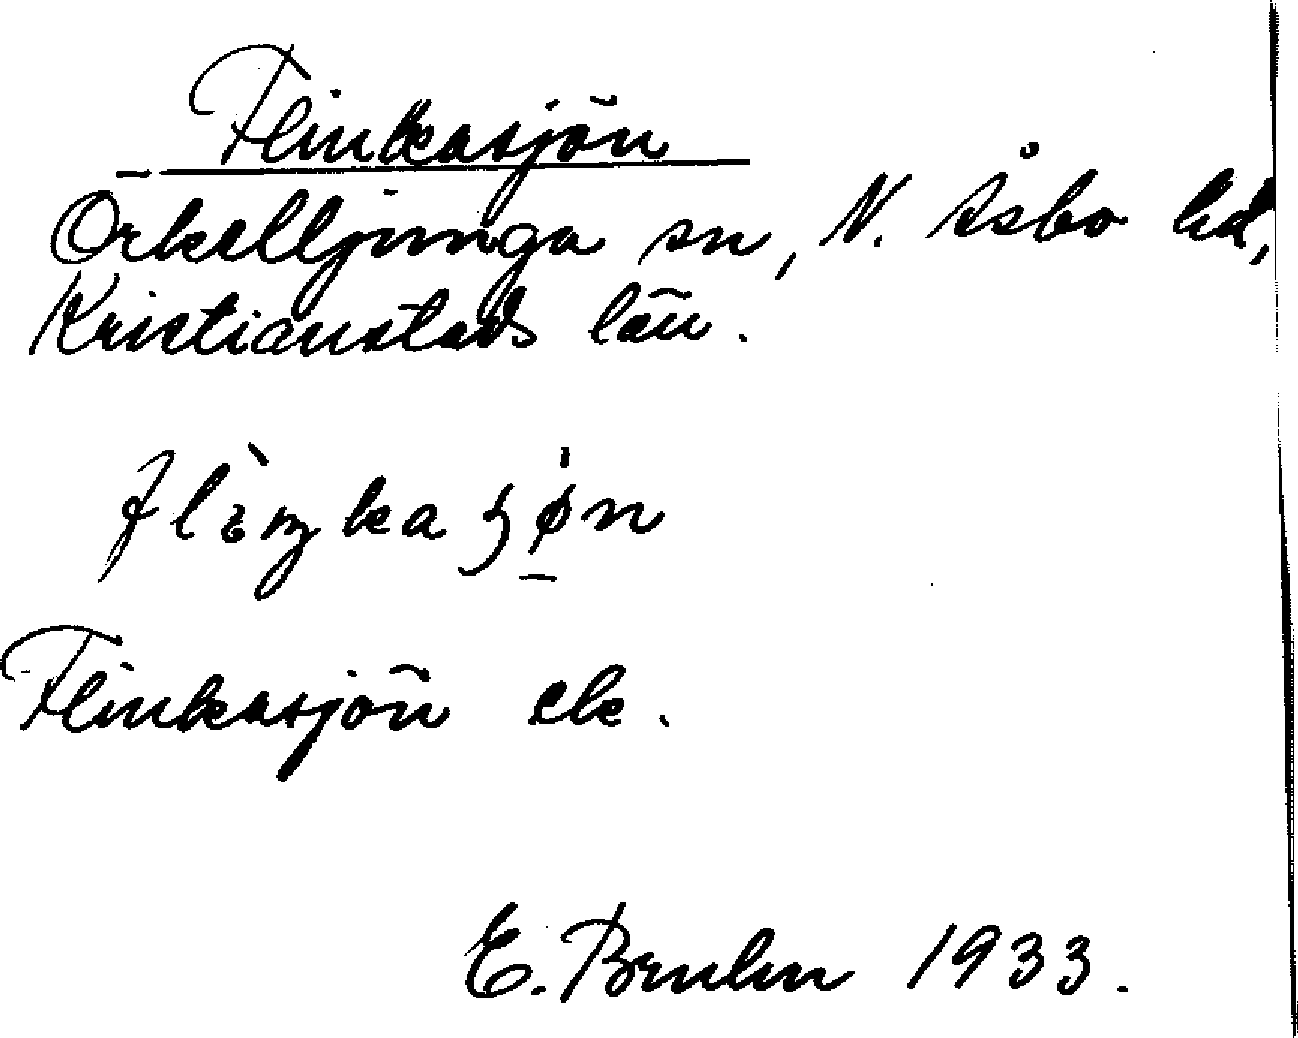 Flinkasjön
Örkelljunga sn, N. Åsbo hd,
Kristianstads län.
Flinkasjön ek.
E. 1933.